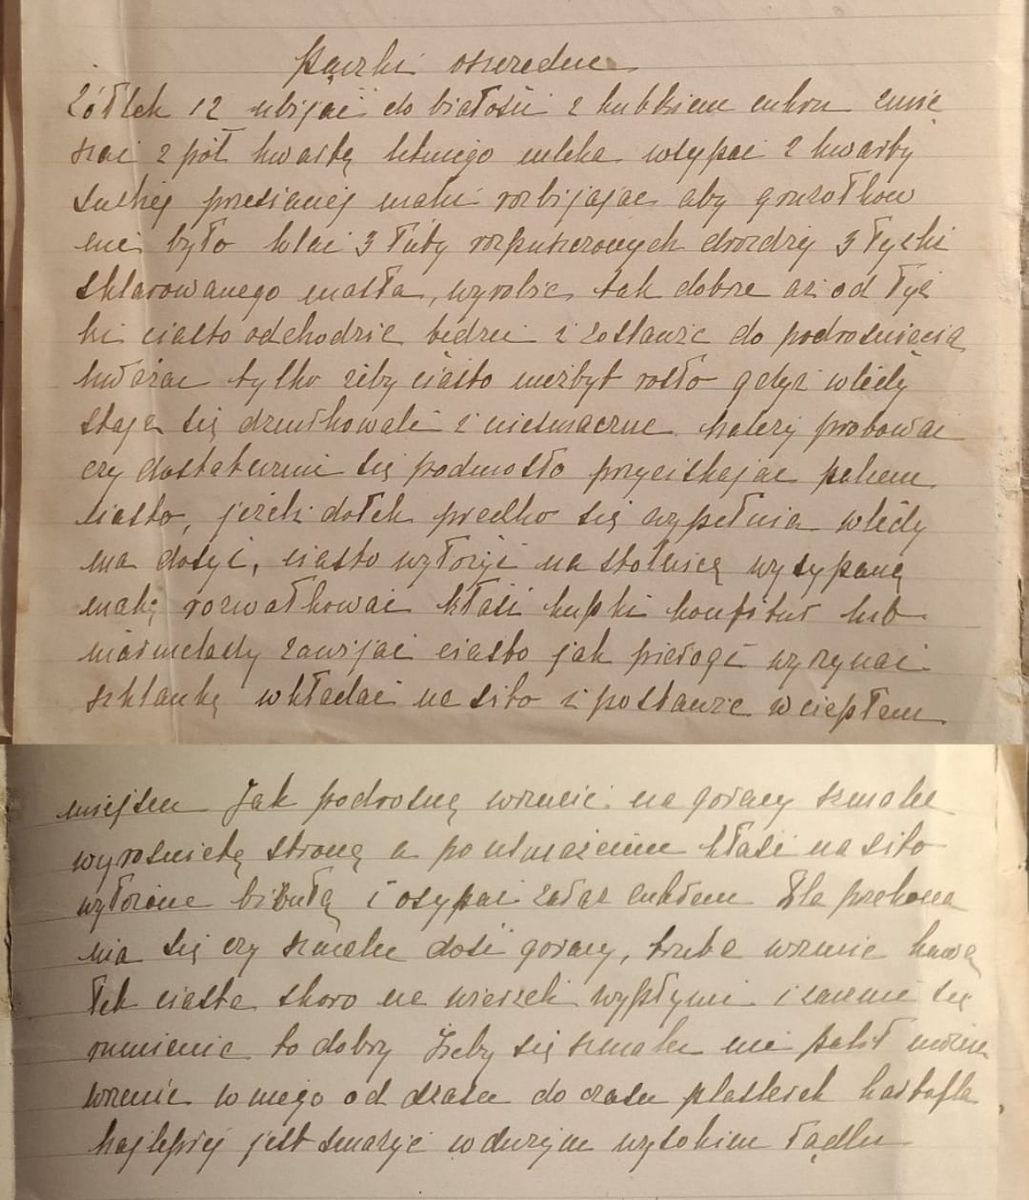 Pączki oszczedne
Żółtek 12 ubijać do białości z kubkiem cukru zmię
szać z pół kwartą letniego mleka wsypać 2 kwarty
suchej przesianej mąki rozbijając aby gruzołkow
nie było wlać 3 łuty rozpuszczonych drożdży 3 łyżki
sklarowanego masła, wyrobić tak dobrze aż od łyż
ki ciasto odchodzić bedzie i zostawić do podrośniecia
uważać tylko żeby ciasto niezbyt rosło gdyż wtedy
staje się dziurkowate i niesmaczne należy probować
czy dostatecznie się podniosło przyciskając palcem
ciasto, jeżeli dołek predko się wypełnia wtedy
ma dosyć, ciasto wyłożyć na stolnicę wysypaną
mąką rozwałkować kłaść kupki konfitur lub
marmelady zawijać ciasto jak pierogi wyrzynać
szklanką wkładać na sito i postawić w ciepłem
miejscu Jak podrosną wrzucić na gorący szmalec
wyrośnietą stroną a po usmażeniu kłaść na sito
wyłożone bibułą i osypać zaraz cukrem Dla przekona
nia się czy szmalec dość gorący, trzeba wrzucić kawa
łek ciasta skoro na wierzch wypłynie i zacznie się
rumienić to dobry Żeby się szmalec nie palił można
wrzucić w niego od czasu do czasu plasterek kartofla
najlepiej jest smażyć w dużym wysokiem rądlu